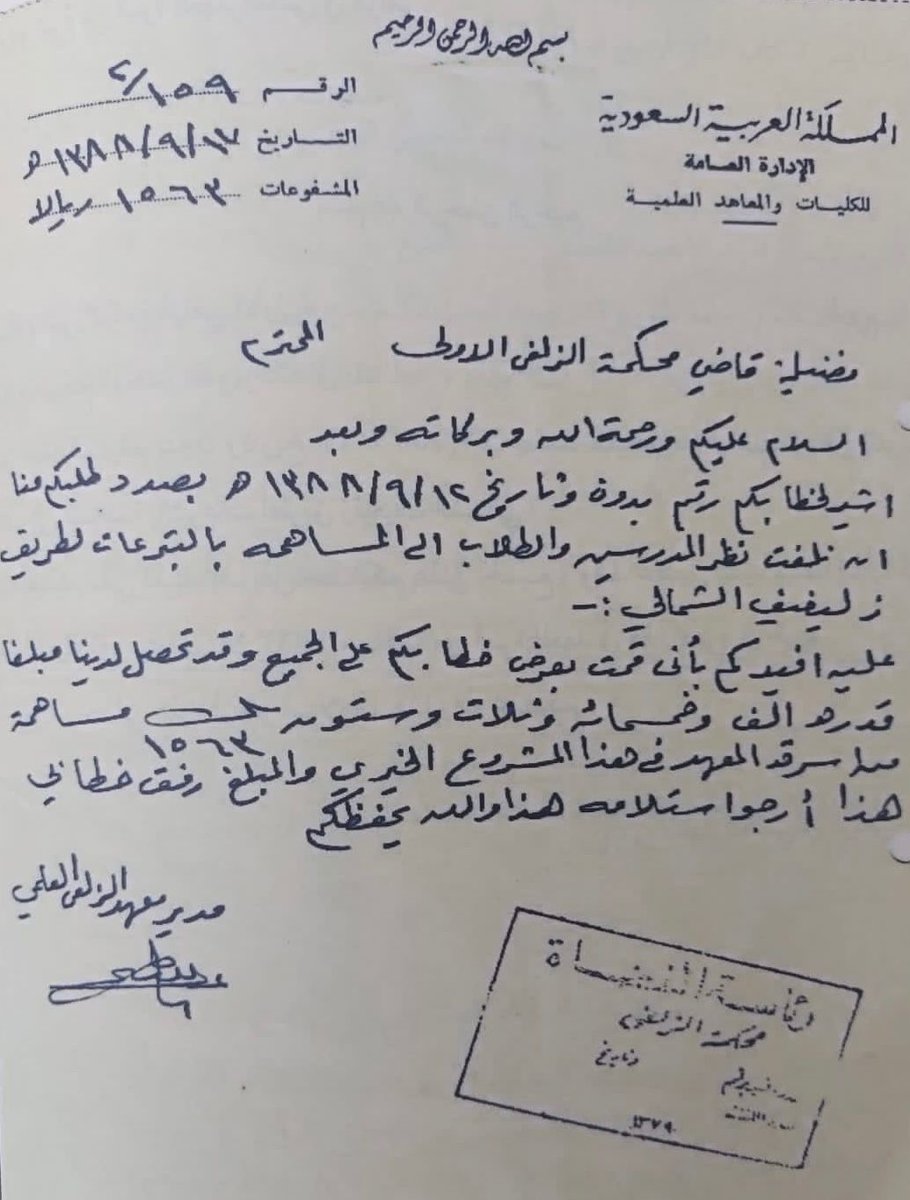 بسم الله الرحمن الرحيم
المملكة العربية السعودية
الإدارة العامة
للكليات والمعاهد العلمية
الرقم ١٥٩/٢
التاريخ ١٣٨٨/٩/١٧ هـ
المشفوعات ١٥٦٣ ريالا
فضيلة قاضي محكمة الزلفى الاولى المحترم
السلام عليكم ورحمة الله وبركاته وبعد
اشير لخطابكم رقم بدون وتاريخ ١٣٨٨/٩/١٢ هـ بصدد طلبكم منا
ان نلفت نظر المدرسين والطلاب الى المساهمه بالتبرعات لطريق
زليغيف الشمالي :-
عليه افيدكم بأنى قمت بعرض خطابكم على الجميع وقد تحصل لدينا مبلغا
قدره الف وخمسمائه وثلاث وستون مساهمة
١٥٦٣
المعهد فى هذا المشروع الخيري والمبلغ رفق خطابي
هذا أرجوا ستلامه هذا والله يحفظكم
مدير معهد الزلفى العلمي
رئاسة القضاة
محكمة الزلفي
وتاريخ
١٣٧٩